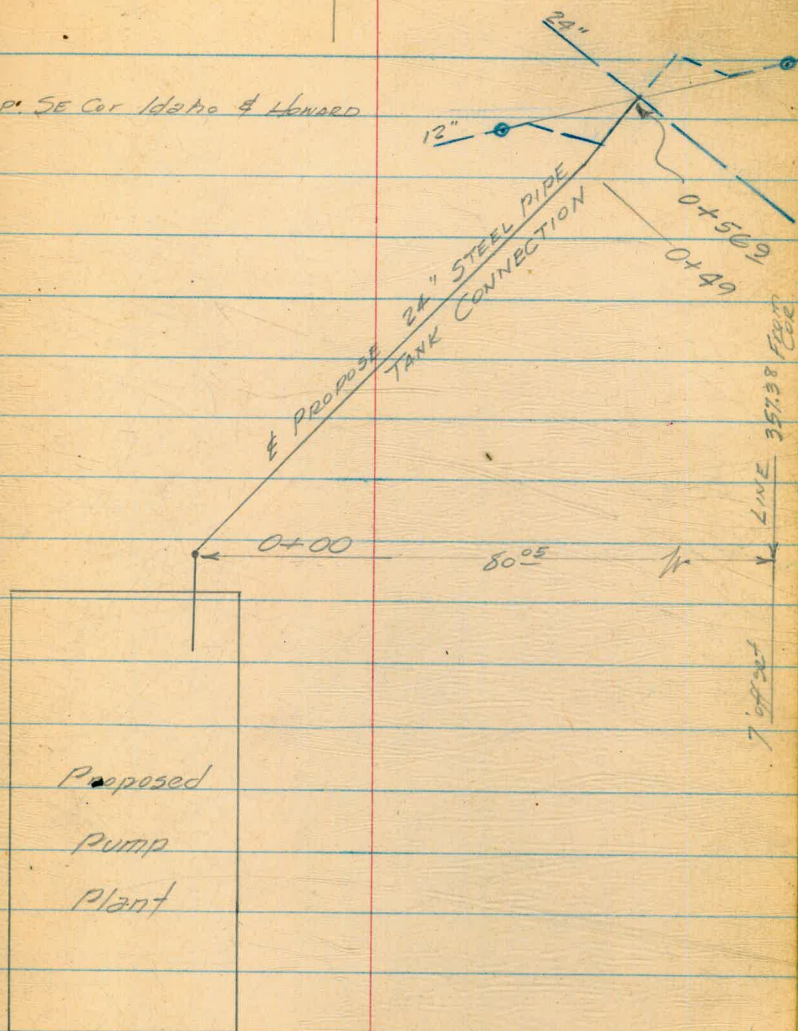 24"
P. SE Cor Idaho & Howard
12"
℄ PROPOSE 24" STEEL PIPE
TANK CONNECTION
0+56
0+49
LINE 357.38 FROM COR
0+00
80 05
7' offset
Proposed
Pump
Plant